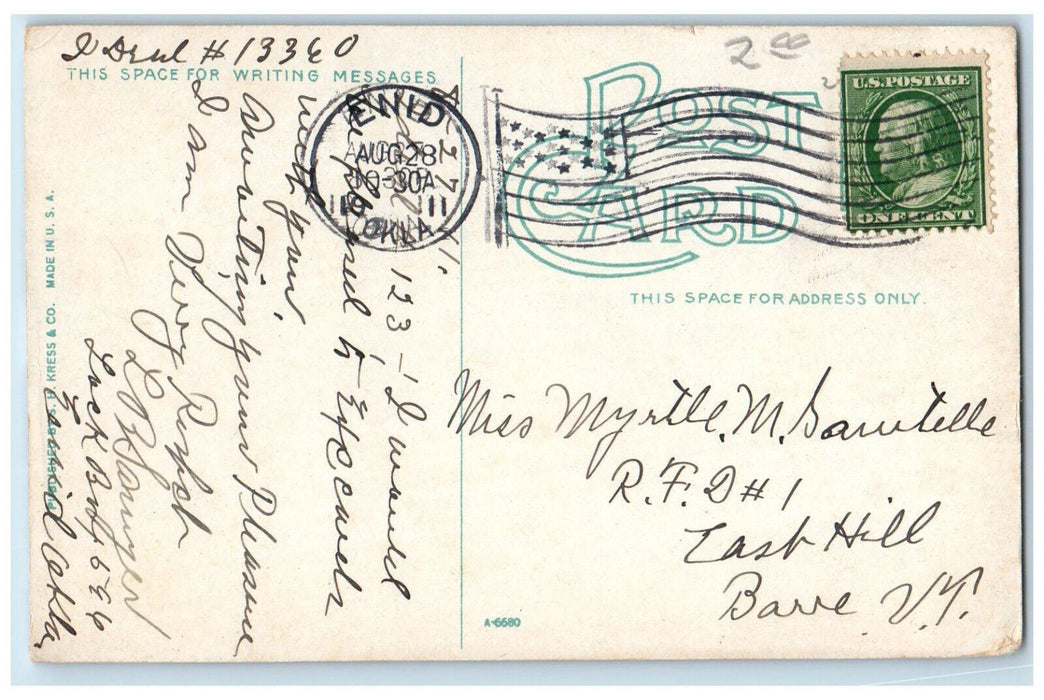 I Deal # 13360
THIS SPACE FOR WRITING MESSAGES
123 - I would
be pleased to Exchange
with you,
Awaiting your Pleasure
I am Very Respt
Lock Box 686
Enid Okla
PUBLISHED BY S. H. KRESS & CO. MADE IN U. S. A.
ENID
AUG 28
10-30A
1911
OKLA
2 00
POST
CARD
U.S. POSTAGE
ONE CENT
THIS SPACE FOR ADDRESS ONLY.
Miss Myrtle. M. Sawtelle
R.F.D # 1
East Hill
Barre VT.
A-6680